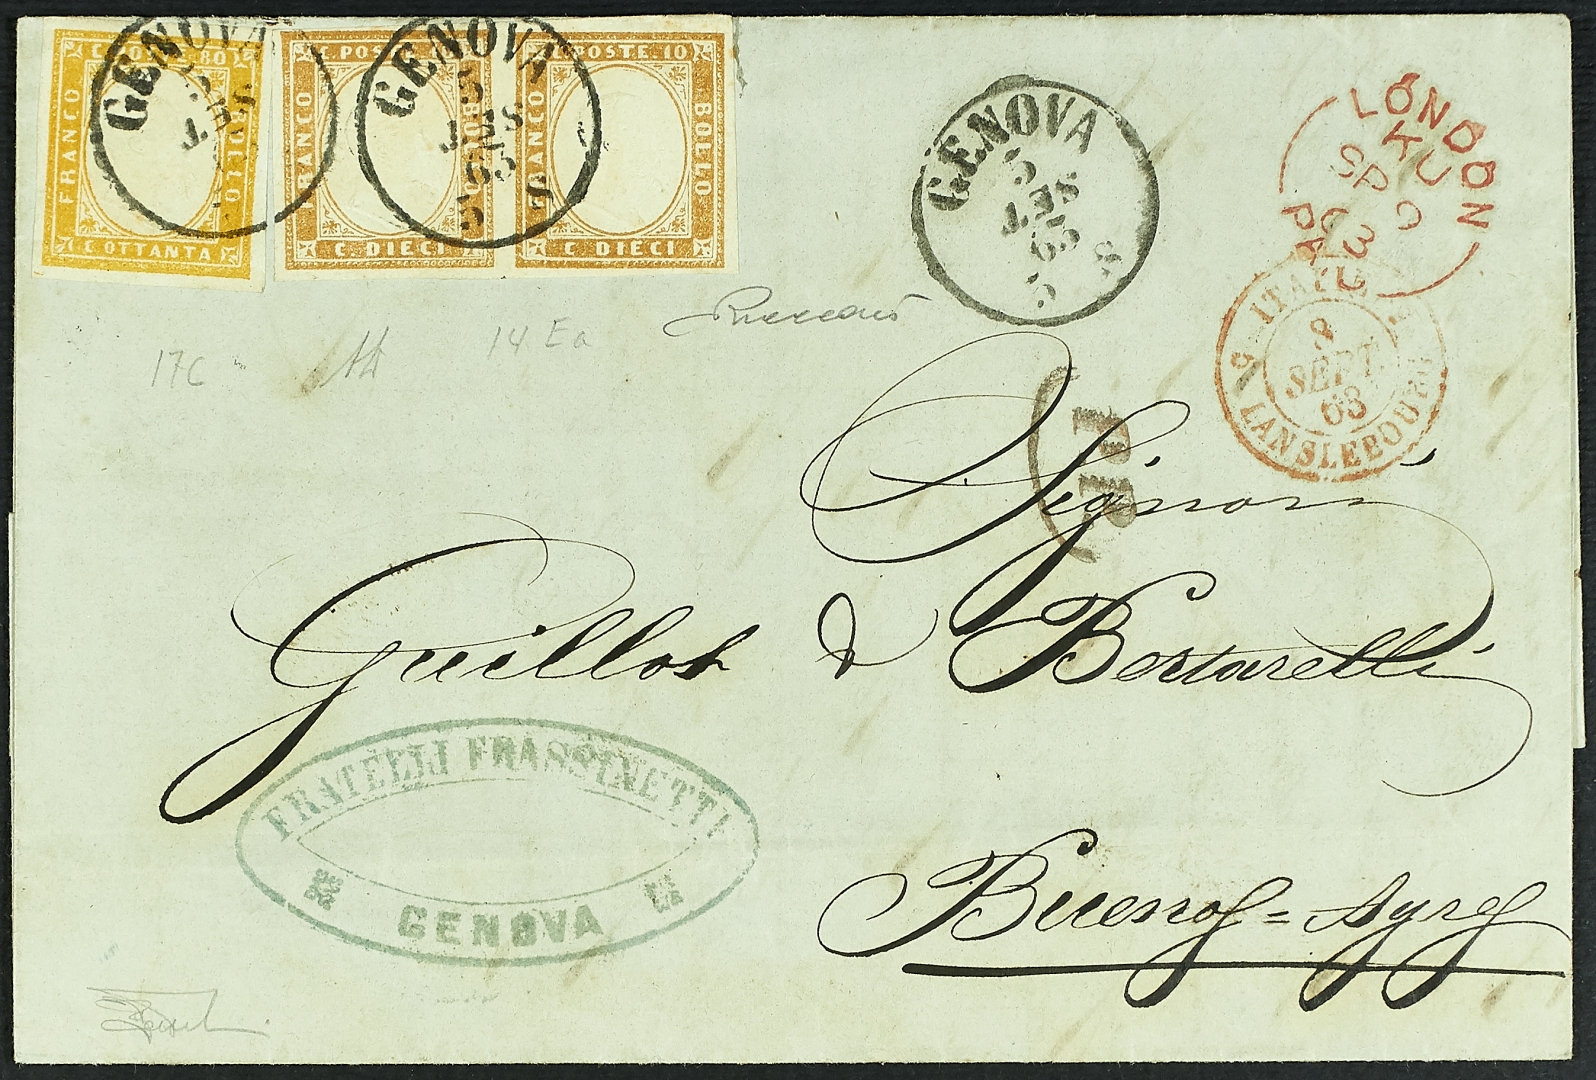 C. POSTE. 80
FRANCO
BOLLO
C OTTANTA
C. POSTE. 10
FRANCO
BOLLO
C. DIECI
C. POSTE. 10
FRANCO
BOLLO
C DIECI
GENOVA
5
SET
GENOVA
5
SET
63
5 S
GENOVA
5
SET
63
5 S
LONDON
KU
SP
63
PAID
ITALIE
8
SEPT.
63
5 LANSLEBOURG 5
P.D.
17c
14 Ea
Signori
Guillot & Bertarelli
Buenos=Ayres
FRATELLI FRASSINETTI
GENOVA